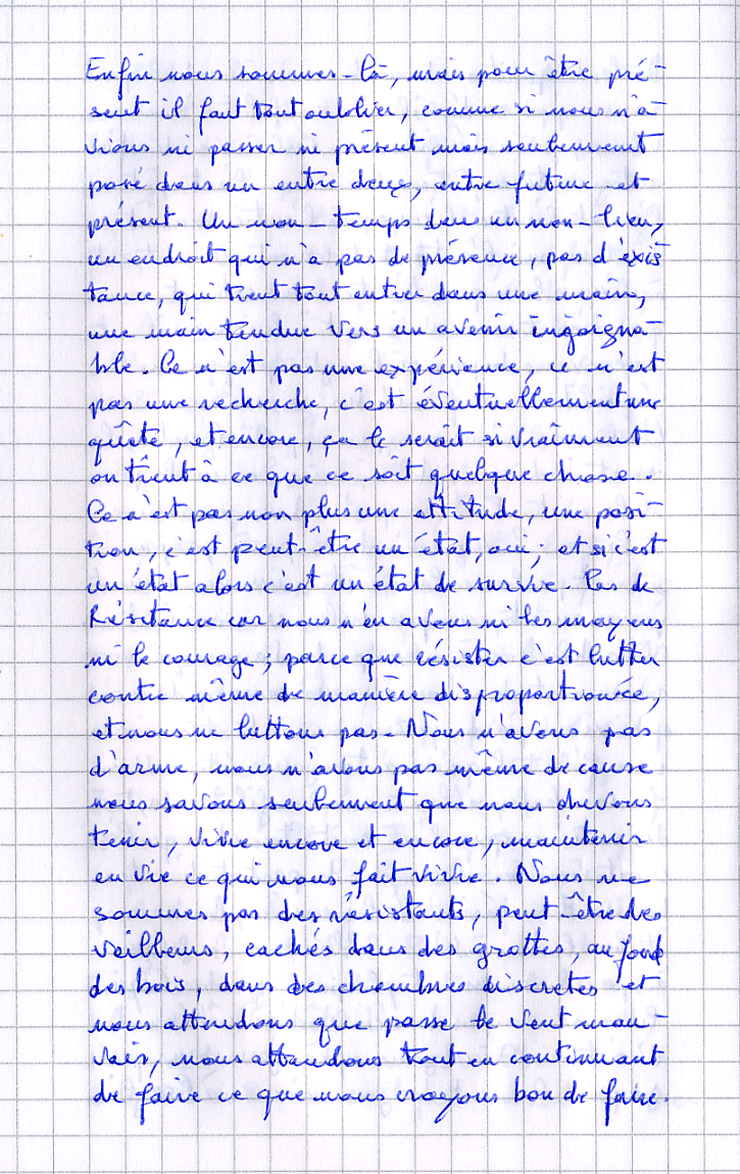 Enfin nous sommes-là, mais pour être pré-
sent il faut tout oublier, comme si nous n'a-
vions ni passer ni présent mais seulement
posé dans un entre deux, entre future et
présent. Un non-temps dans un non-lieu,
un endroit qui n'a pas de présence, pas d'exis
tance, qui tient tout entier dans une main,
une main tendue vers un avenir
ble. Ce n'est pas une expérience, ce n'est
pas une recherche, c'est éventuellement une
quête, et encore, ça le serait si vraiment
on tient à ce que ce soit quelque chose.
Ce n'est pas non plus une attitude, une posi-
tion, c'est peut-être un état, oui; et si c'est
un état alors c'est un état de survie. Pas de
Résistance car nous n'en avons ni les moyens
ni le courage; parce que résister c'est lutter
contre même de manière disproportionnée,
et nous ne luttons pas. Nous n'avons pas
d'arme, nous n'avons pas même de cause
nous savons seulement que nous devons
tenir, vivre encore et encore, maintenir
en vie ce qui nous fait vivre. Nous ne
sommes pas des résistants, peut-être des
veilleurs, cachés dans des grottes, au fond
des bois, dans des chambres discretes et
nous attendons que passe le vent mau-
vais, nous attendons tout en continuant
de faire ce que nous croyons bon de faire.